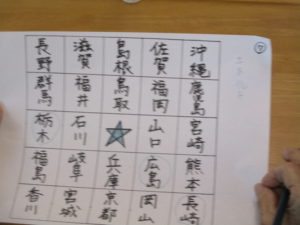 ⑦
長野 滋賀 島根 佐賀 沖縄
群馬 福井 鳥取 福岡 鹿児島
栃木 石川 山口 宮崎
福島 岐阜 兵庫 広島 熊本
香川 宮城 京都 岡山 長崎